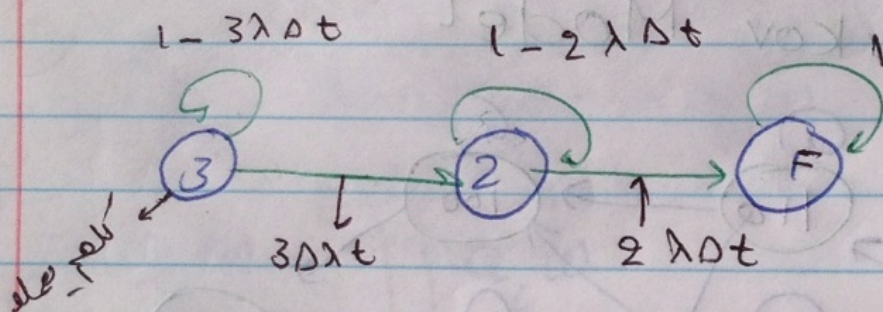 1 - 3λΔt
1 - 2λΔt
1
3
2
F
3Δλt
2λΔt